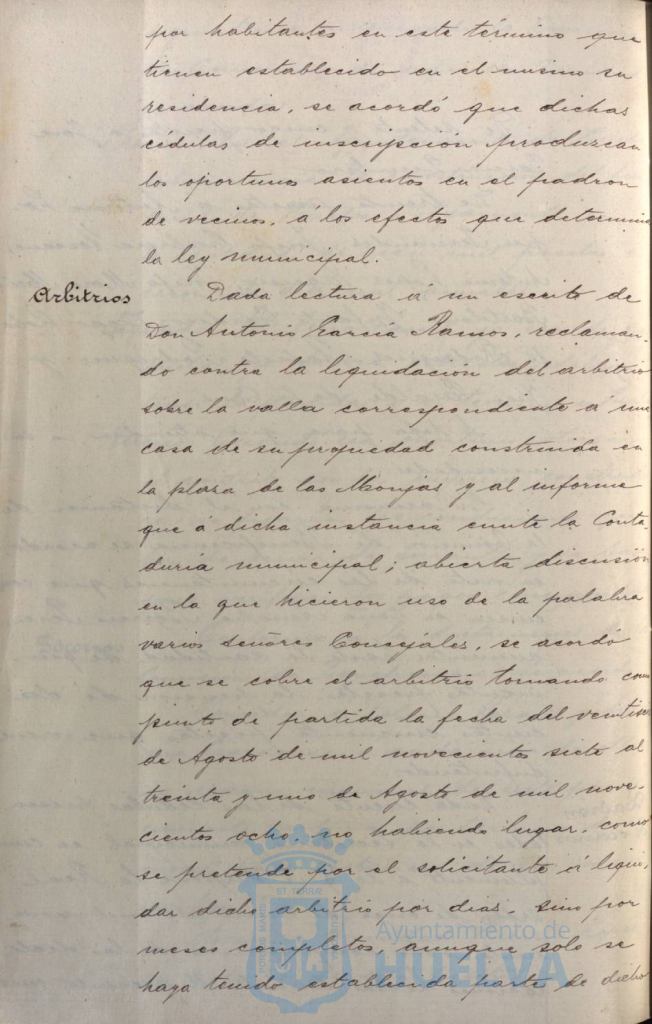 por habitantes en este término que
tienen establecido en el mismo su
residencia, se acordó que dichas
cédulas de inscripción produzcan
los oportunos asientos en el padron
de vecinos, á los efectos que determina
la ley municipal.
Arbitrios
Dada lectura á un escrito de
Don Antonio García Ramos, reclaman-
do contra la liquidación del arbitrio
sobre la valla correspondiente á una
casa de su propiedad construida en
la plaza de las Monjas y al informe
que á dicha instancia emite la Conta-
duría municipal; abierta discusión
en la que hicieron uso de la palabra
varios señores Concejales, se acordó
que se cobre el arbitrio tomando como
punto de partida la fecha del
de Agosto de mil novecientos siete al
treinta y uno de Agosto de mil nove-
cientos ocho, no habiendo lugar, como
se pretende por el solicitante á liqui-
dar dicho arbitrio por dias, sino por
meses completos, aunque solo se
haya tenido establecida parte de dicho
Ayuntamiento de
HUELVA